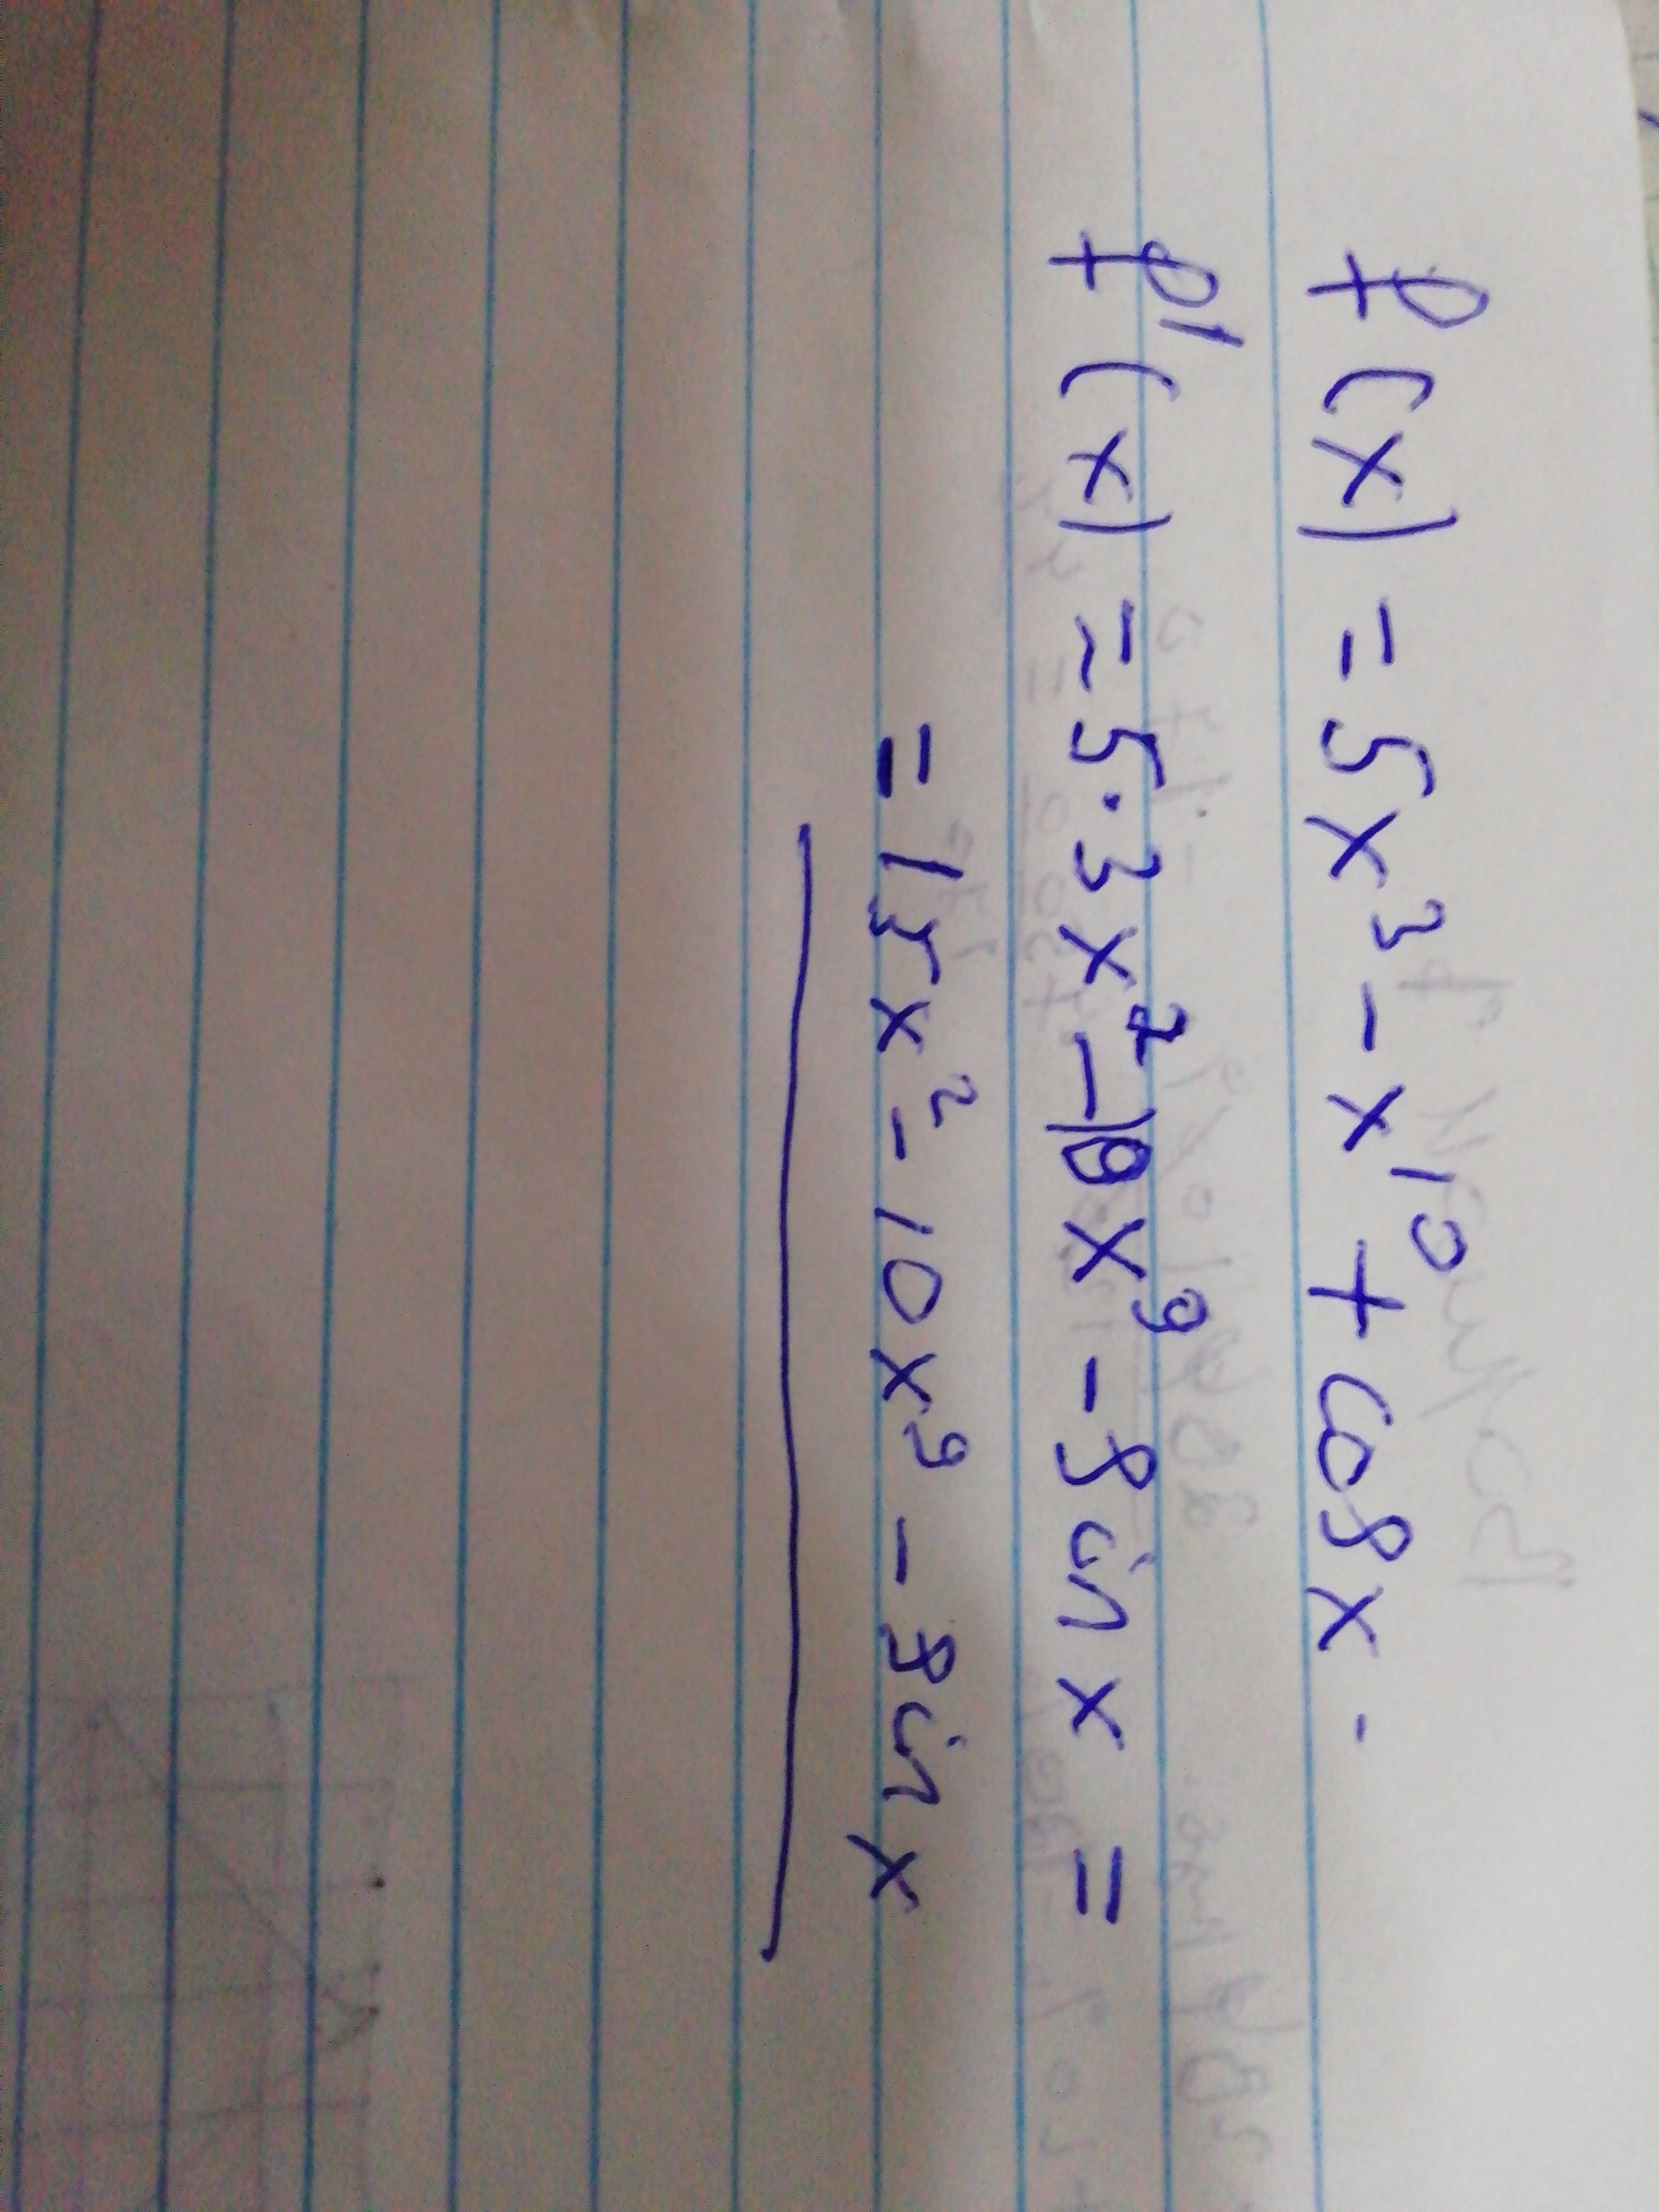 f(x) = 5x³ - x¹⁰ + cosx -
f'(x) = 5·3x² - 10x⁹ - sin x =
= 15x² - 10x⁹ - sin x